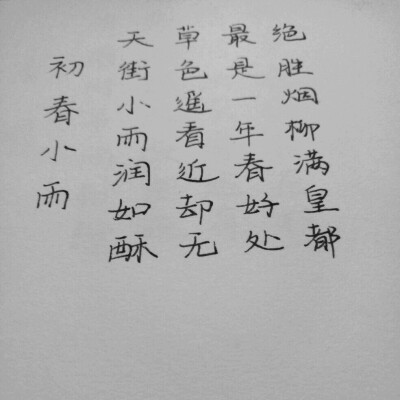 初春小雨
天街小雨润如酥
草色遥看近却无
最是一年春好处
绝胜烟柳满皇都